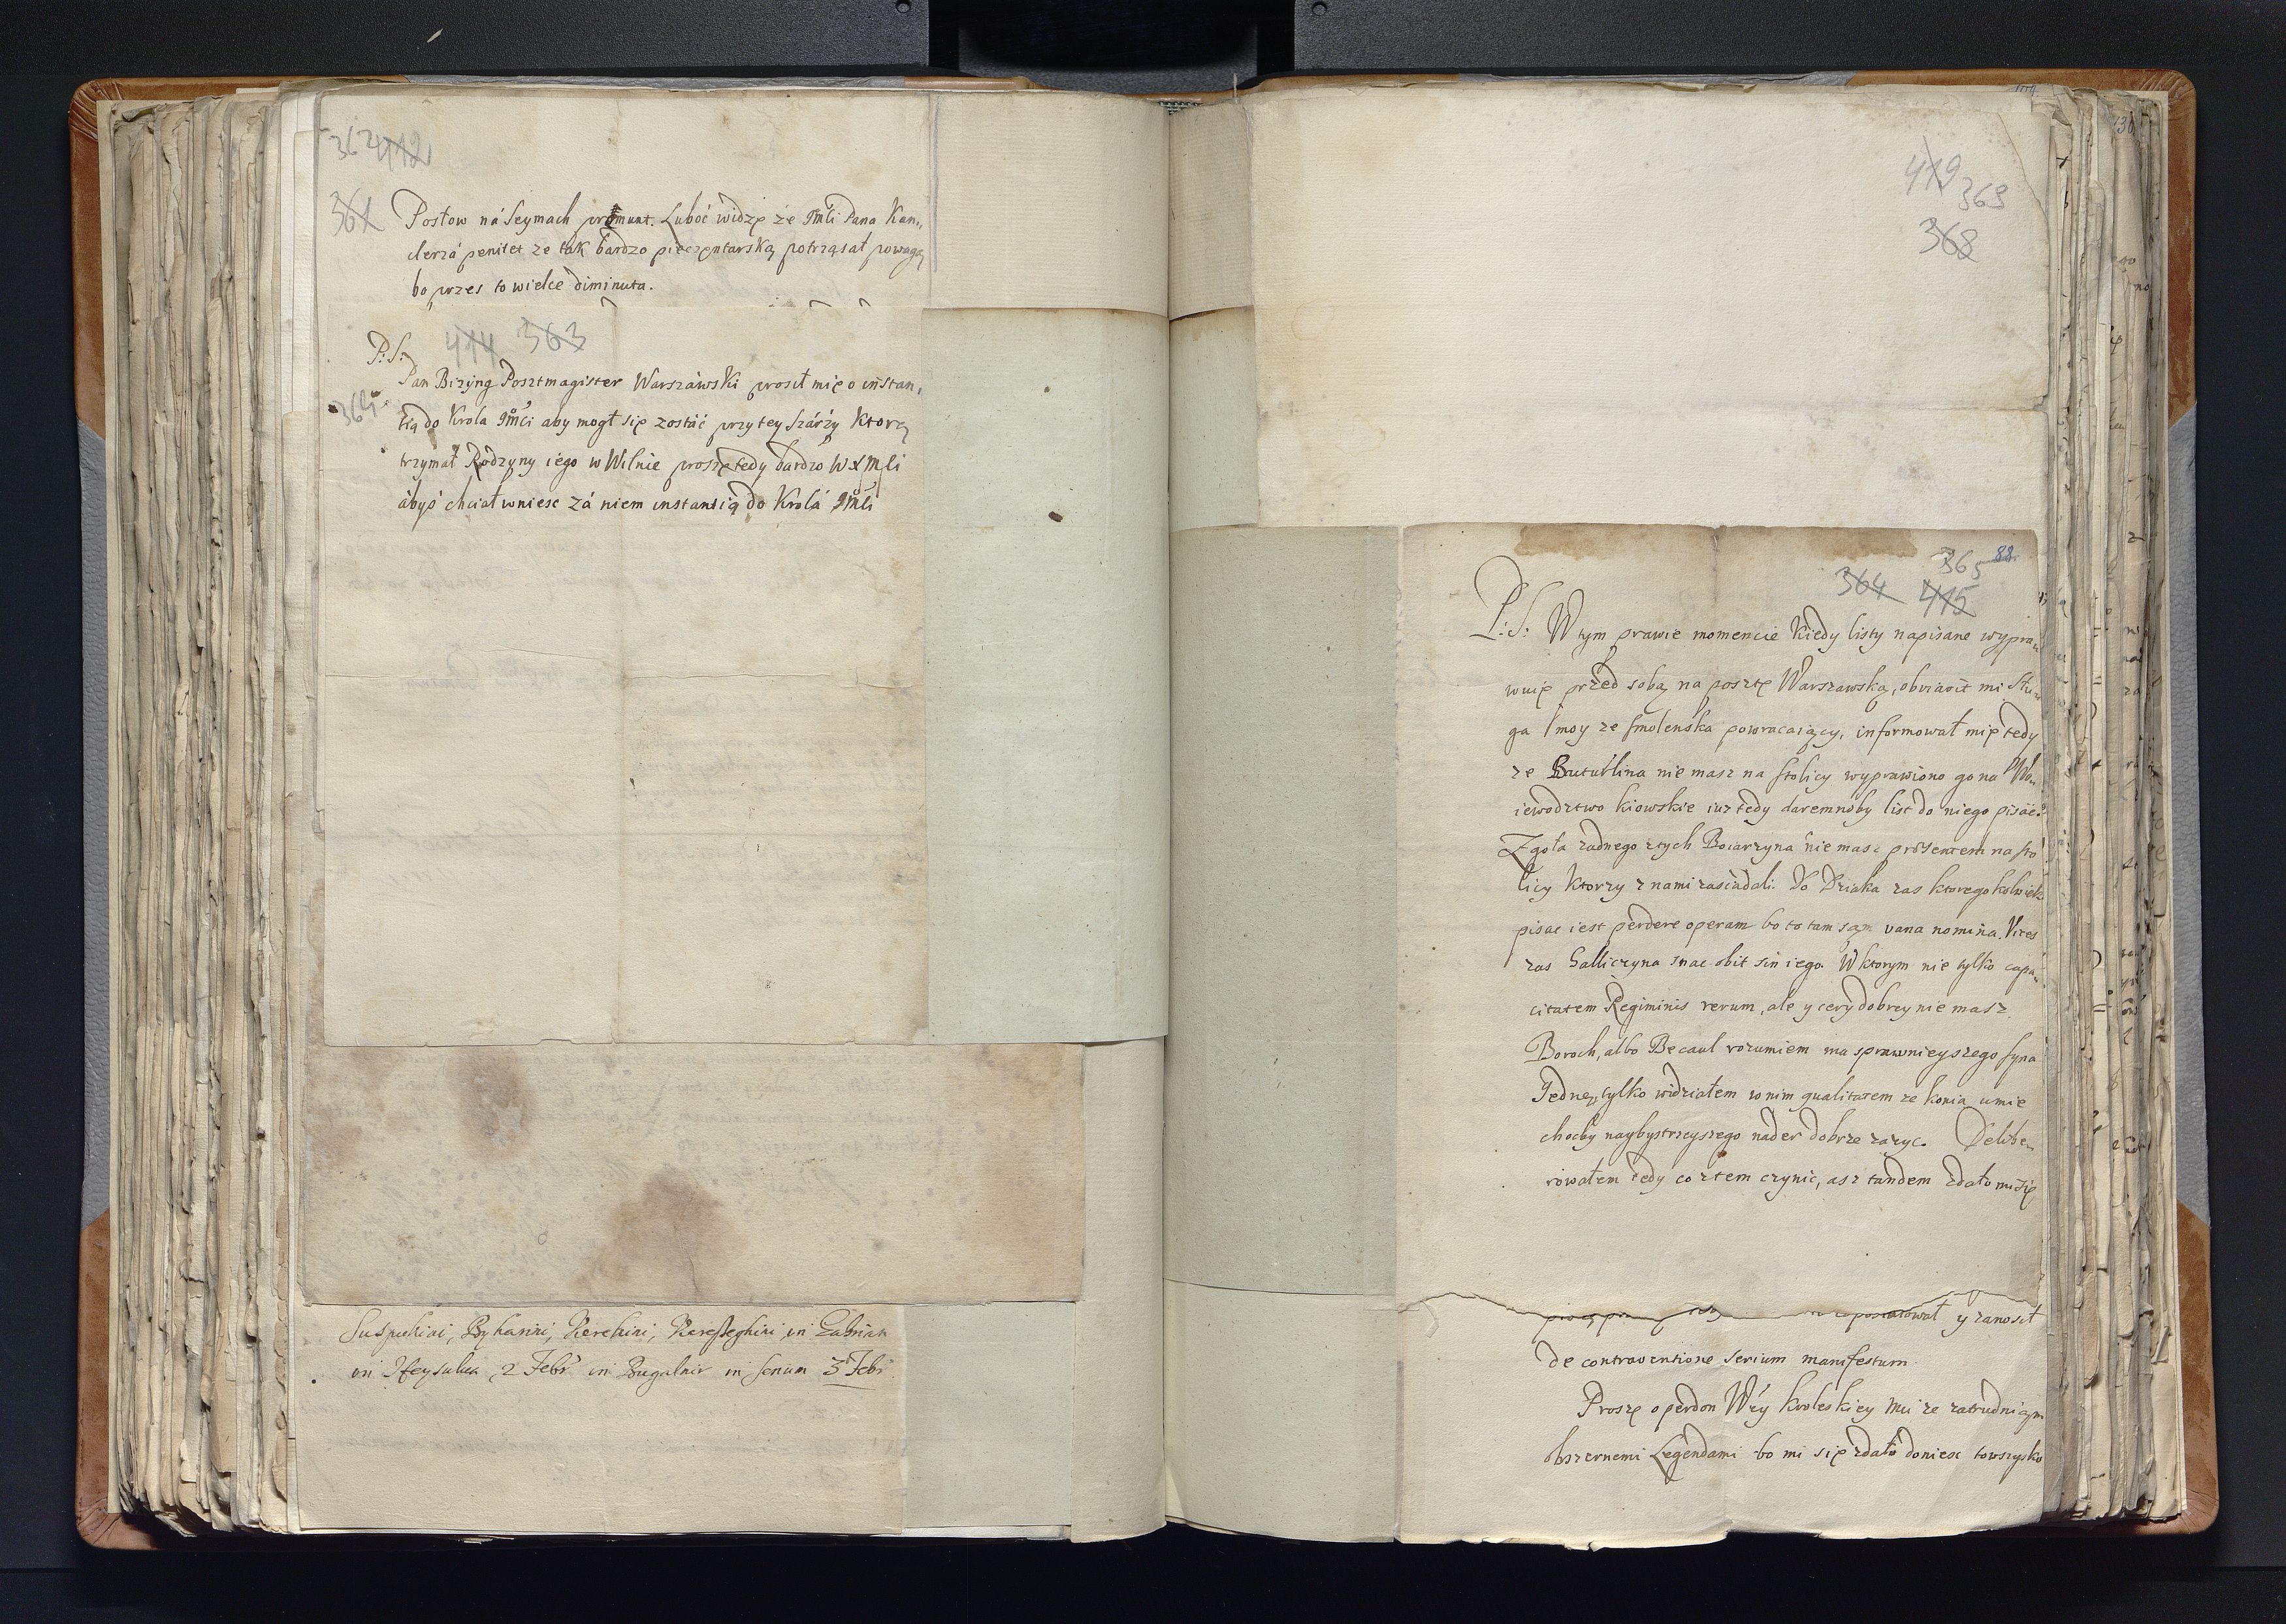 362 412
361
Posłow ná Seymach promunt. Luboć widzę że Jmći Pana Kan„
clerzá penitet ze tak bardzo pieczętarską potrząsał powagą
bo przes to wielce diminuta.
414 363
P: S:
Pan Bizÿng Posztmagister Warszáwski prosił mię o instan„
364
tią do Krola Jmći aby mogł się zostáć przy tey Szárży ktorą
trzymał Rodzyny iego w Wilnie proszę tedy bardzo WxMći
ábyś chciał wniesc zá niem instantią do Krolá Jmći
in
2 Febr in in 3 Febr
419 369
368
88
365
364 415
P: S: W tym prawie momencie kiedy listy napisane wypra„
wuię przed sobą na posztę Warszawską, obviavit mi Słu„
ga moy ze Smolenska powracaiący, informował mię tedy
ze Buturlina nie masz na stolicy wyprawiono go na Wo„
iewodztwo kiowskie iuz tedy daremnoby list do niego pisać.
Zgoła zadnego z tych Boiarzyna nie masz præsentem na sto
licy ktorzy z nami zasiadali. Do Dziaka zas ktoregokolwiek
pisac iest perdere operam bo to tam są vana nomina. Vices
zas Galliczyna snac obit sin iego. W ktorym nie tylko capa„
citatem Regiminis rerum, ale y cery dobrey nie masz.
Boroch, albo Becaul rozumiem ma sprawnieyszego syna
Jednę tylko widziałem w nim qualitatem ze konia umie
chocby naybystrzeyszego nader dobrze zazyc. Delibe„
rowałem tedy co z tem czynic, asz tandem zdało mi się
y zanosił
de contraventione serium manifestum.
Proszę o perdon Wży kroleskiey Mci ze zatrudniąm
obszernemi Legendami bo mi się zdało doniesc to wszysko